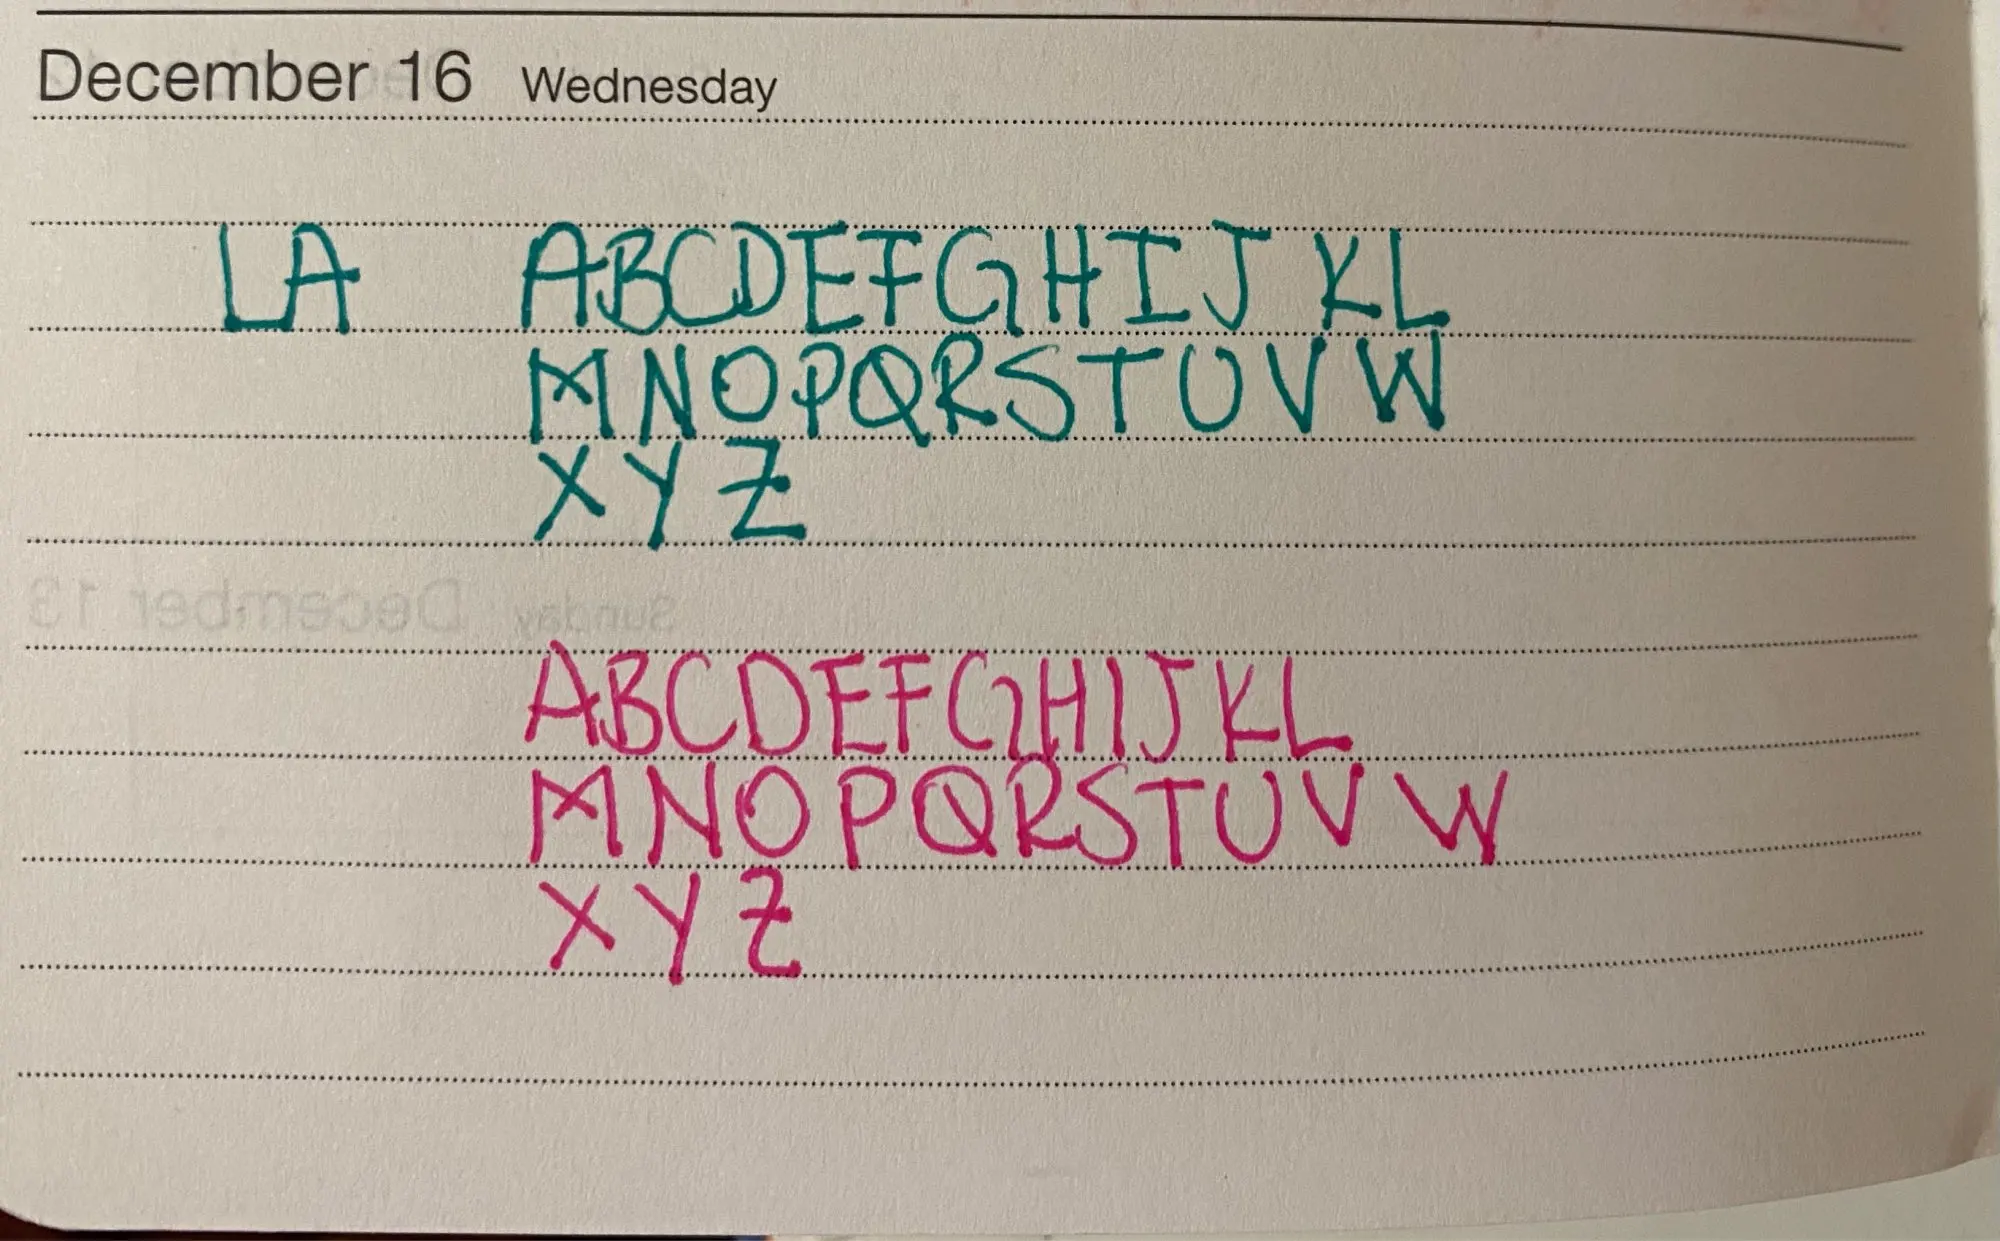 December 16 Wednesday
LA ABCDEFGHIJKL
MNOPQRSTUVW
XYZ
December 13 Sunday
ABCDEFGHIJKL
MNOPQRSTUVW
XYZ